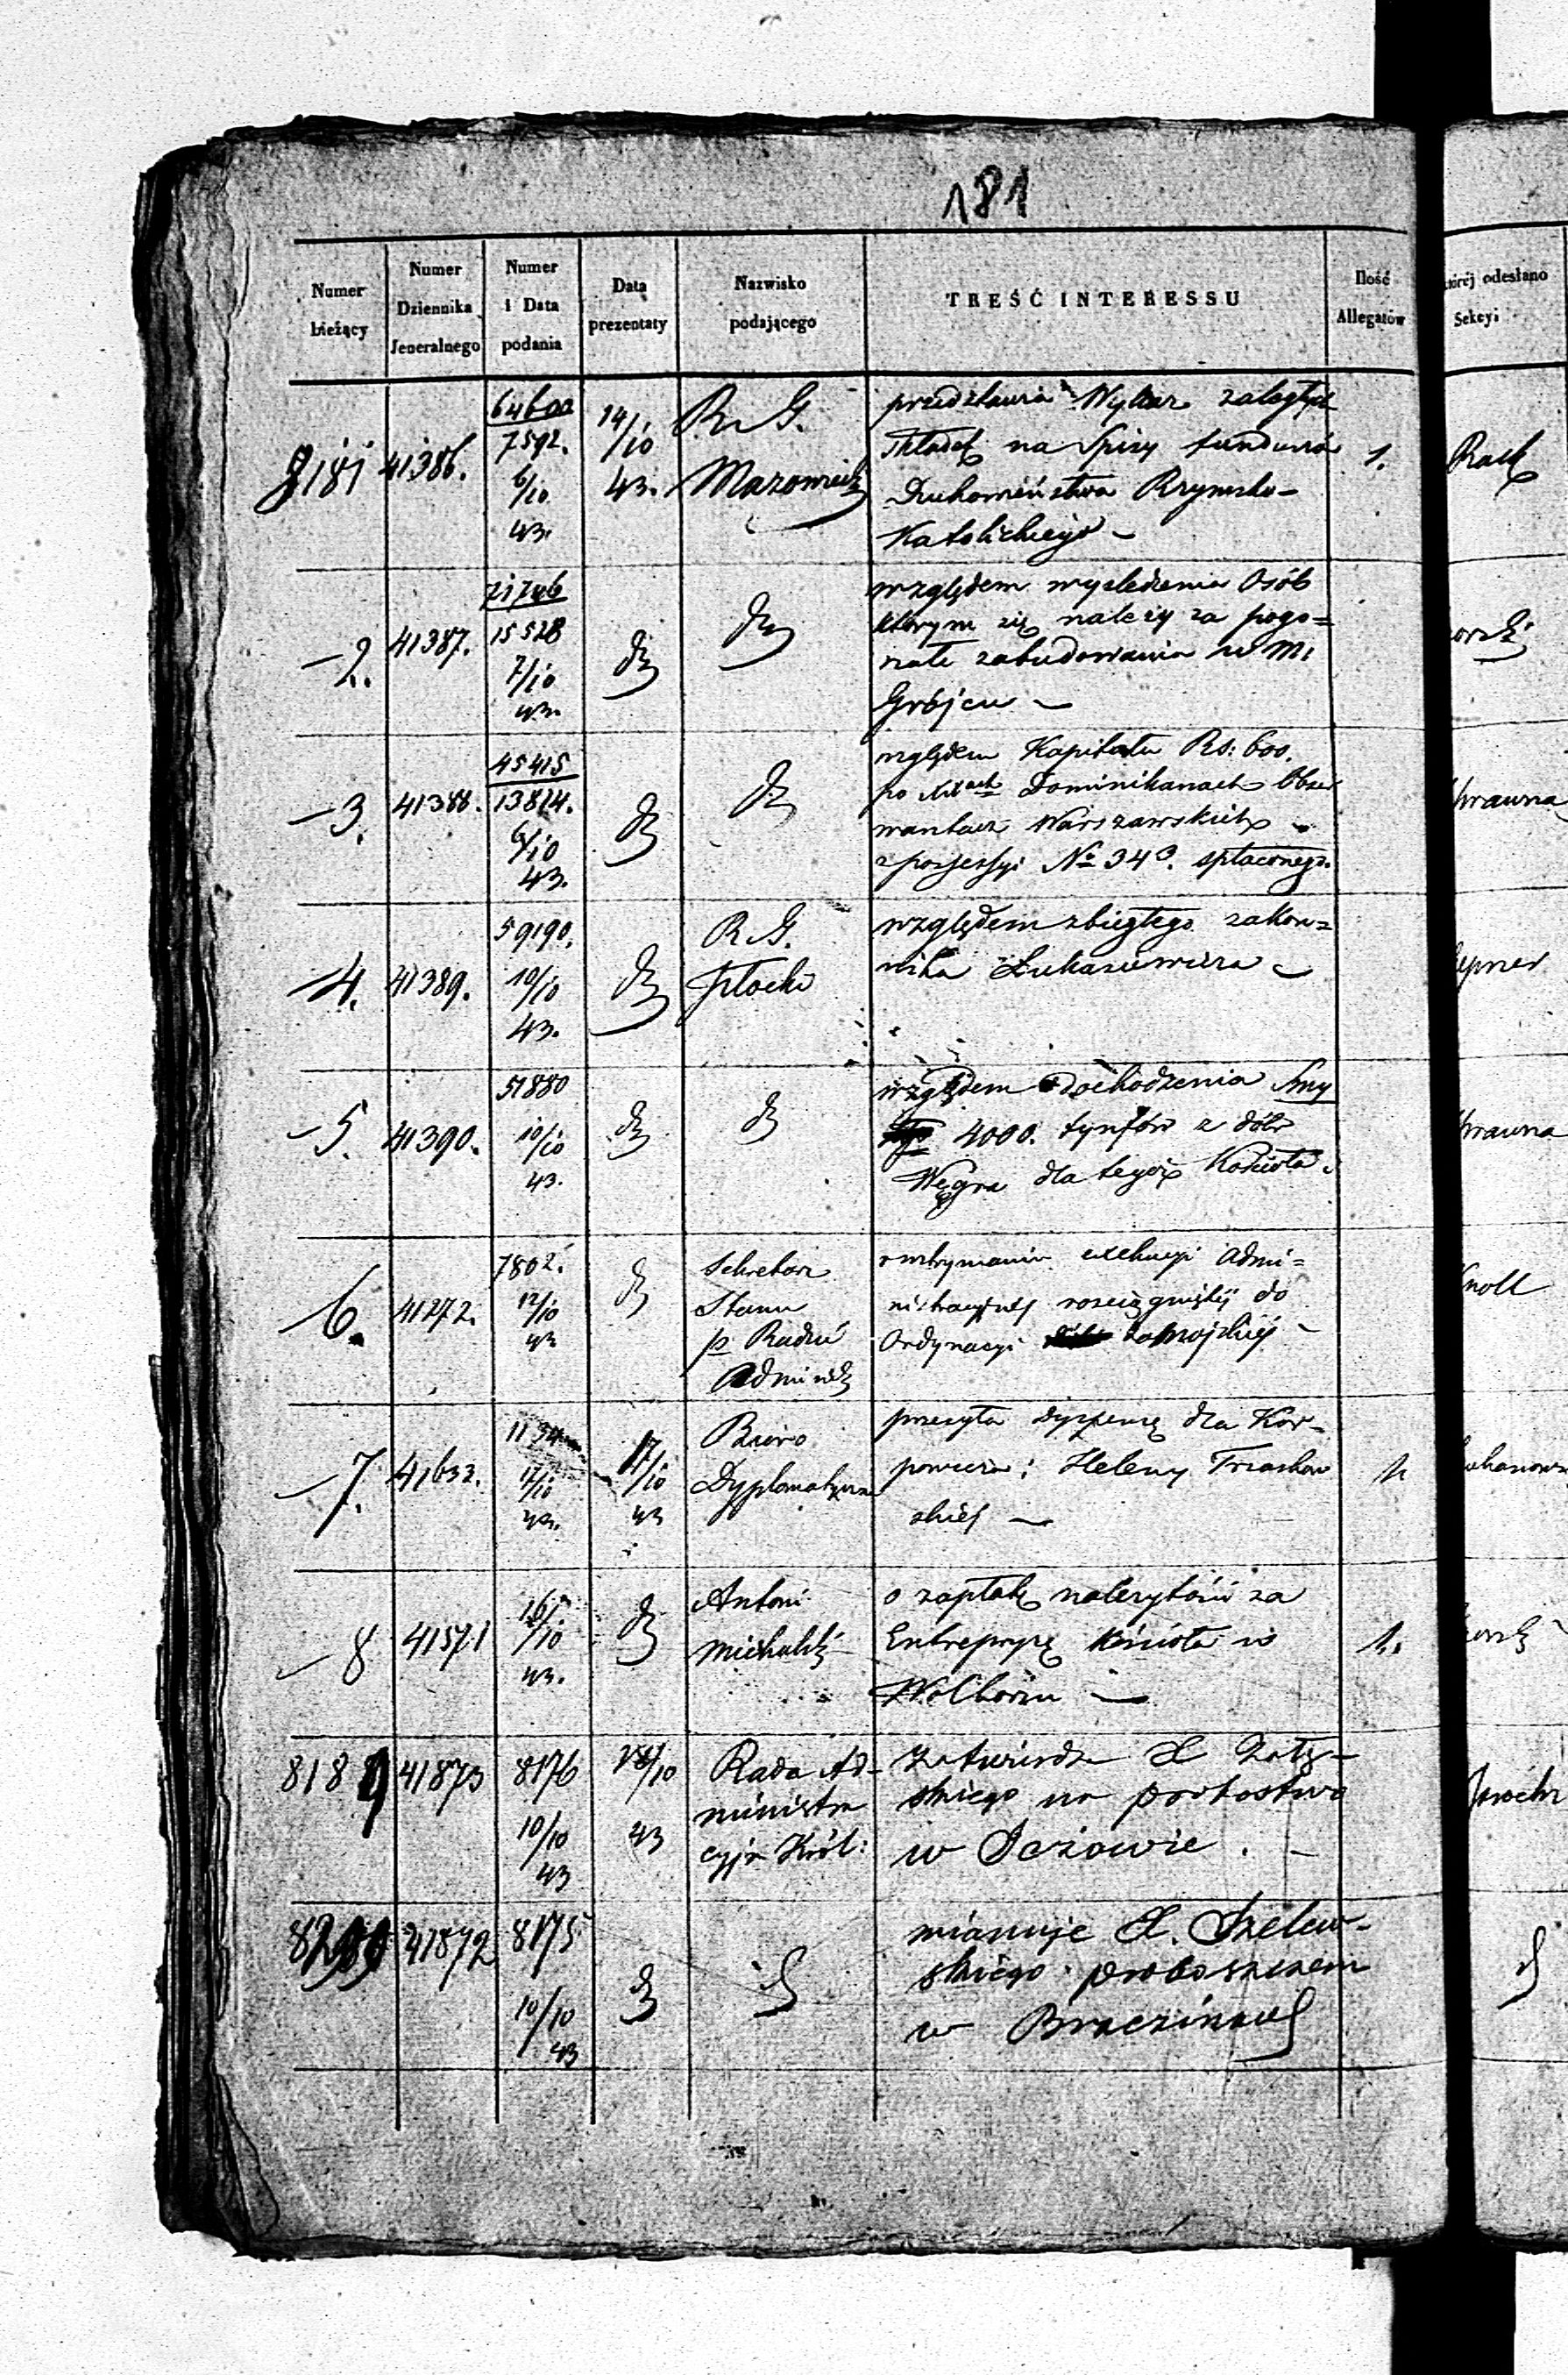 181
Numer bieżący
Numer Dziennika Jeneralnego
Numer i Data podania
Data prezentaty
Nazwisko podającego
TREŚĆ INTERESSU
Ilość Allegatów
której odesłano
Sekcyi
8181 41386. 64600 7592. 6/10 43. 14/10 43. R. G. Mazowiecki
przedstawia Wykaz zaległych
składek na Spisy funduszów
Duchowieństwa Rzymsko-
Katolickiego –
1.
–2. 41387. 71746 15528 7/10 43. d d
względem wyśledzenia Osób
którym się należy za pogo=
rzałe zabudowania w M.
Grójcu –
–3. 41388. 45415 13814. 6/10 43. d d
względem Kapitału Rs: 600.
po XX Dominikanach Obser
wantach Warszawskich
z possessyi No 343. spłaconego.
–4. 41389. 59190. 10/10 43. d R. G. Płocki
względem zbiegłego zakon=
nika Łukasiewicza –
–5. 41390. 51880 10/10 43. d d
względem dochodzenia Smy
4000. tynfów z dóbr
Węgra dla tegoż Kościoła.
6. 41272. 7802. 12/10 43 d
Sekretarz
Stanu
p. Radzie
Adminis
o wstrzymanie exekucyi Admi=
nistracyjnej rosciągniętej do
Ordynacyi Zamojskiej –
–7. 41632. 17/10 43. 17/10 43
Biuro
Dyplomatyczne
przesyła dyspensę dla Kar–
powicza i Heleny Trzaskow
skiej –
1.
–8 41571 16/10 43. d
Antoni
Michalski
o zapłatę należytości za
Entrepryzę kościoła w
Wolborzu –
1.
8189 41873 8176 10/10 43 18/10 43
Rada Ad–
ministra
cyjna Król:
zatwierdza X
skiego na probostwo
w Jeżowie. –
41872 8175 10/10 43 d d
mianuje X. Szelew–
skiego proboszczem
w